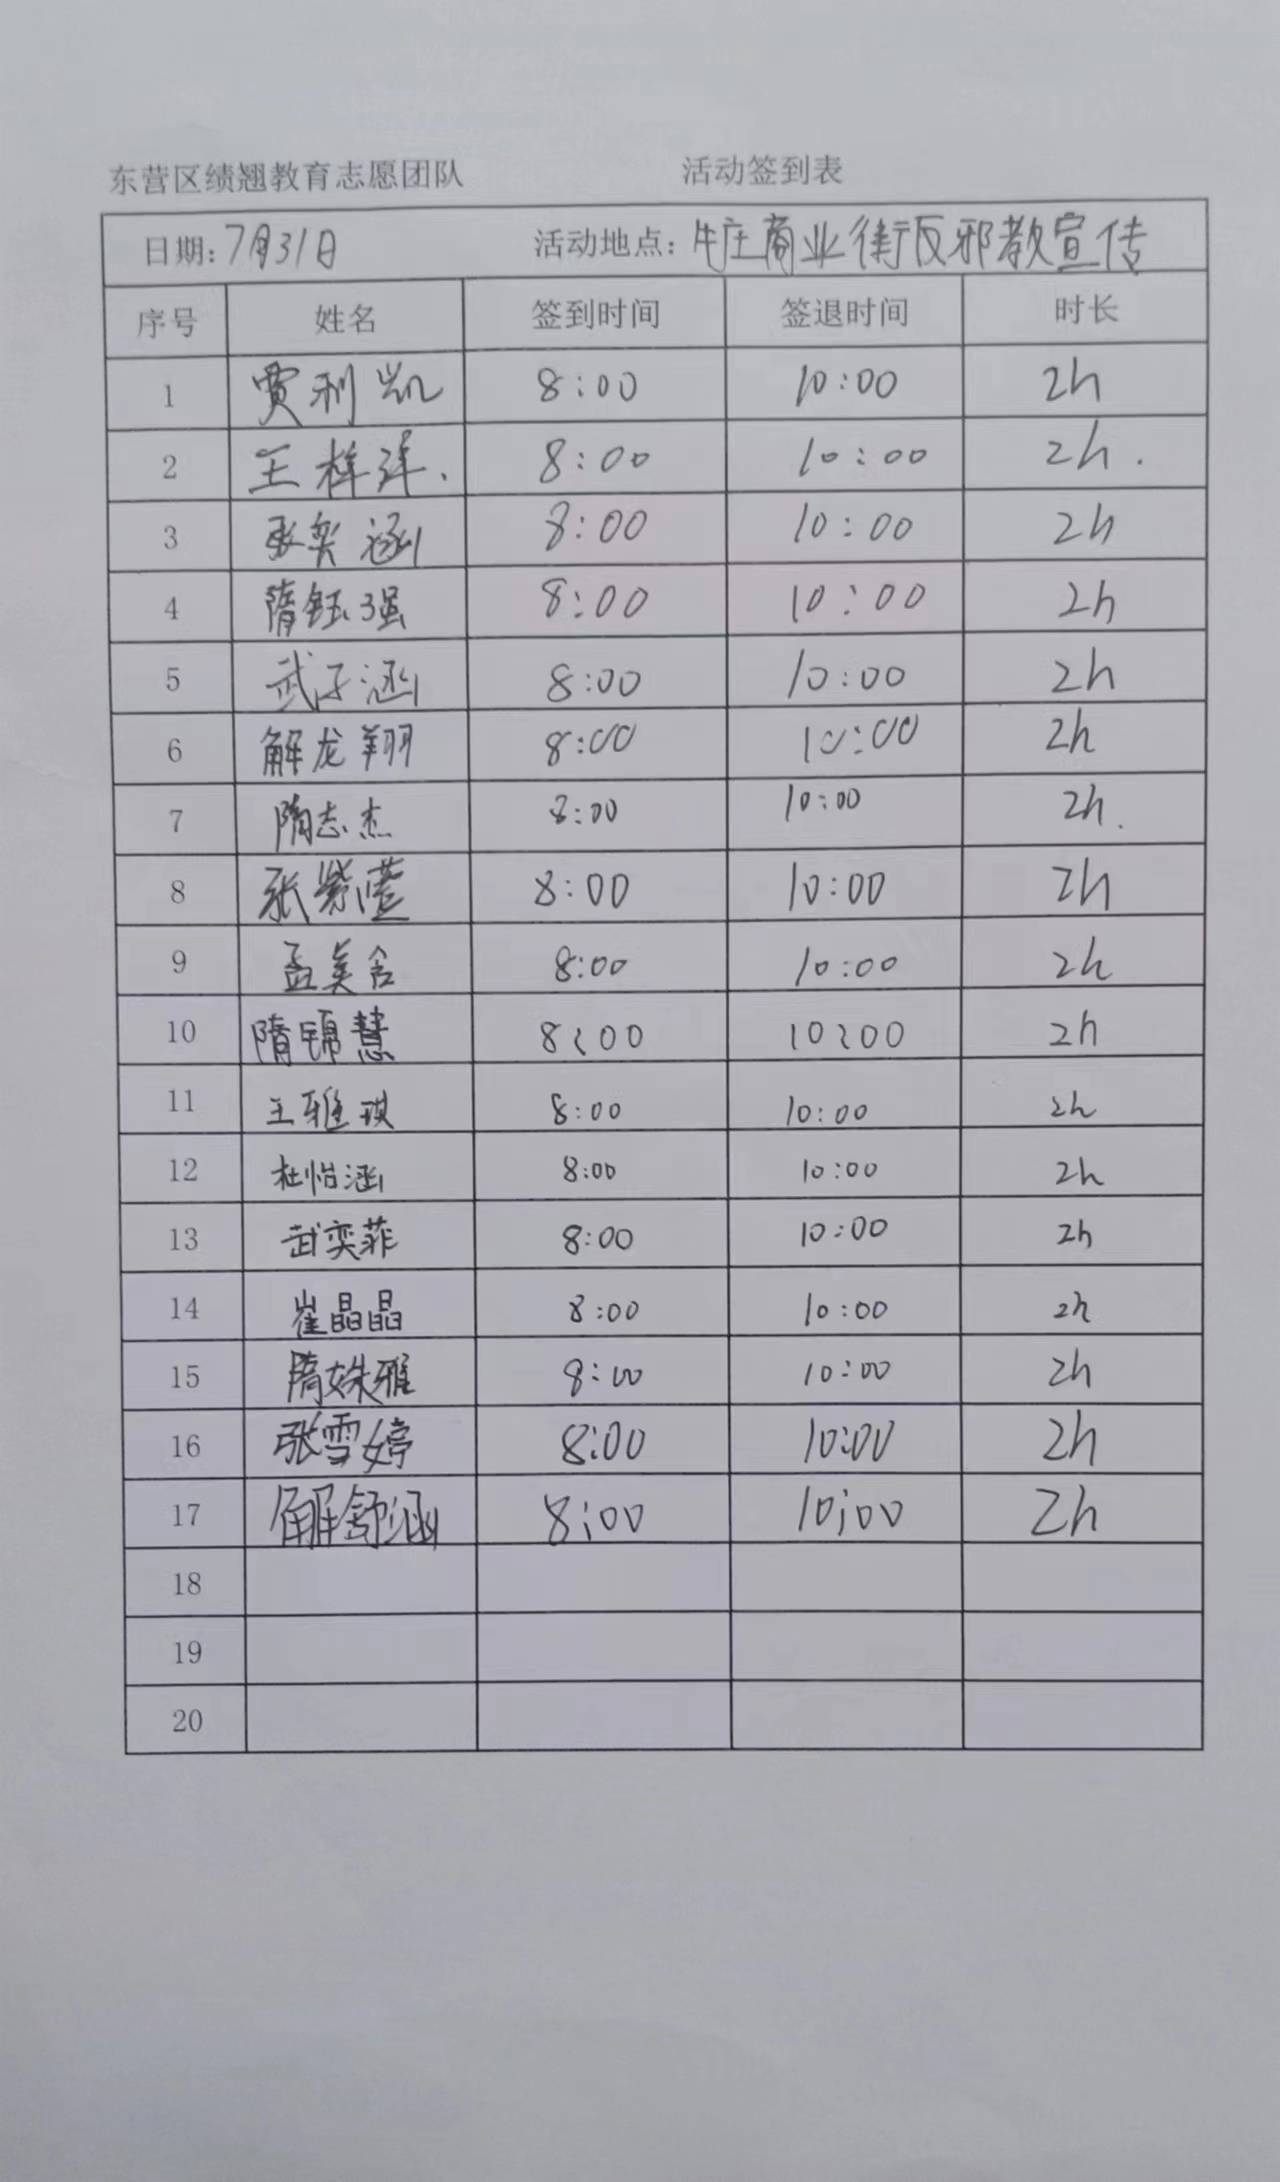 东营区绩翘教育志愿团队 活动签到表
日期:7月31日 活动地点:牛庄商业街反邪教宣传
序号 姓名 签到时间 签退时间 时长
1 贾利凯 8:00 10:00 2h
2 王梓洋. 8:00 10:00 2h.
3 张奕涵 8:00 10:00 2h
4 隋钰强 8:00 10:00 2h
5 武子涵 8:00 10:00 2h
6 解龙翔 8:00 10:00 2h
7 隋志杰 8:00 10:00 2h.
8 张紫萱 8:00 10:00 2h
9 孟美含 8:00 10:00 2h
10 隋锦慧 8:00 10:00 2h
11 王雅琪 8:00 10:00 2h
12 杜怡涵 8:00 10:00 2h
13 武奕菲 8:00 10:00 2h
14 崔晶晶 8:00 10:00 2h
15 隋姝雅 8:00 10:00 2h
16 张雪婷 8:00 10:00 2h
17 解舒涵 8:00 10:00 2h
18
19
20